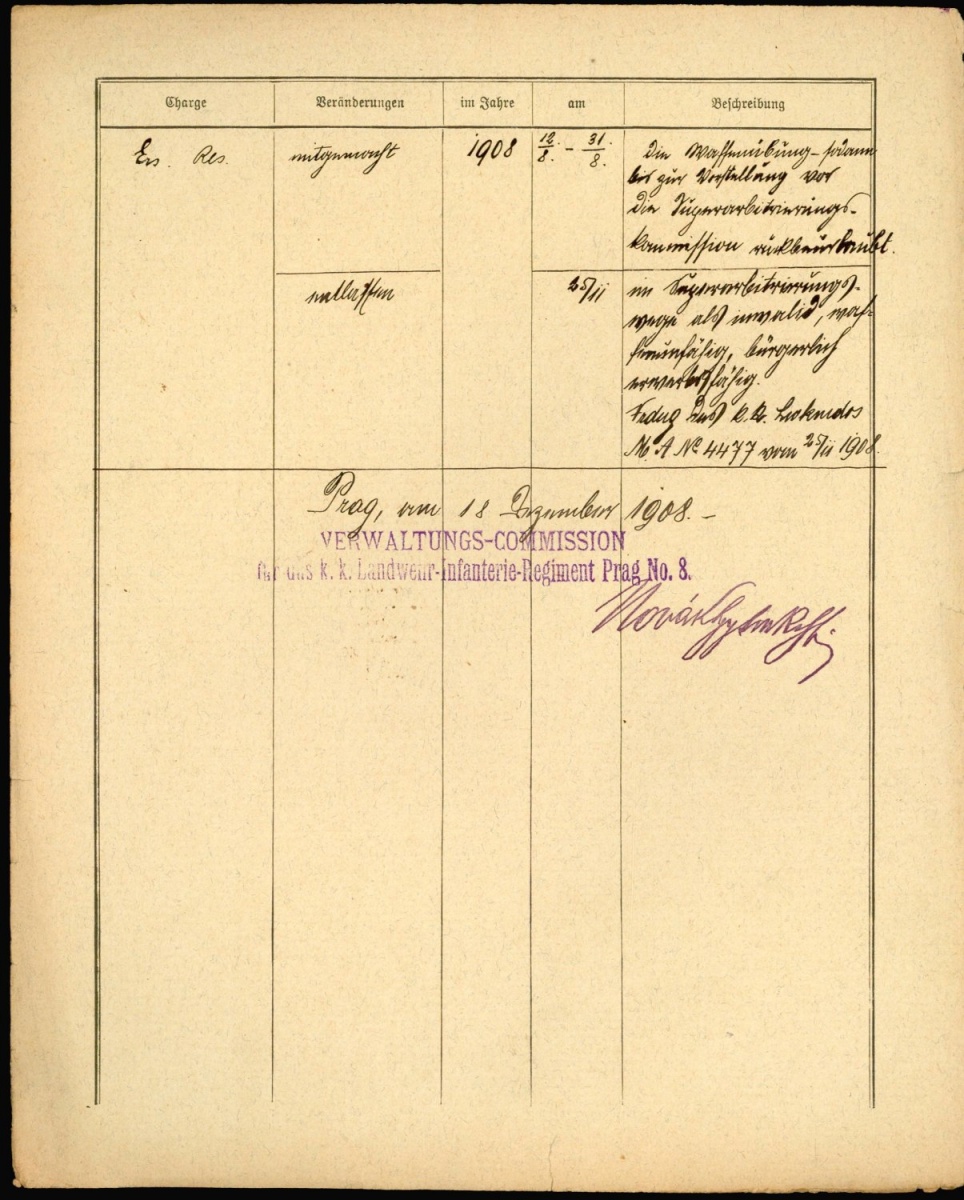 Charge Veränderungen im Jahre am Beschreibung
Ers. Res. mitgemacht 1908 12./8. – 31./8. die Waffenübung – sodann
bis zur Vorstellung vor
die Superarbitrierungs-
kommission rückbeurlaubt.
entlassen 25/11 im Superarbitrierungs-
wege als invalid, waf-
fenunfähig, bürgerlich
erwerbsfähig.
des k. k.
M. A № 4477 vom 25/11 1908.
Prag, am 18 Dezember 1908. –
VERWALTUNGS-COMMISSION
für das k. k. Landwehr-Infanterie-Regiment Prag No. 8.
Novák